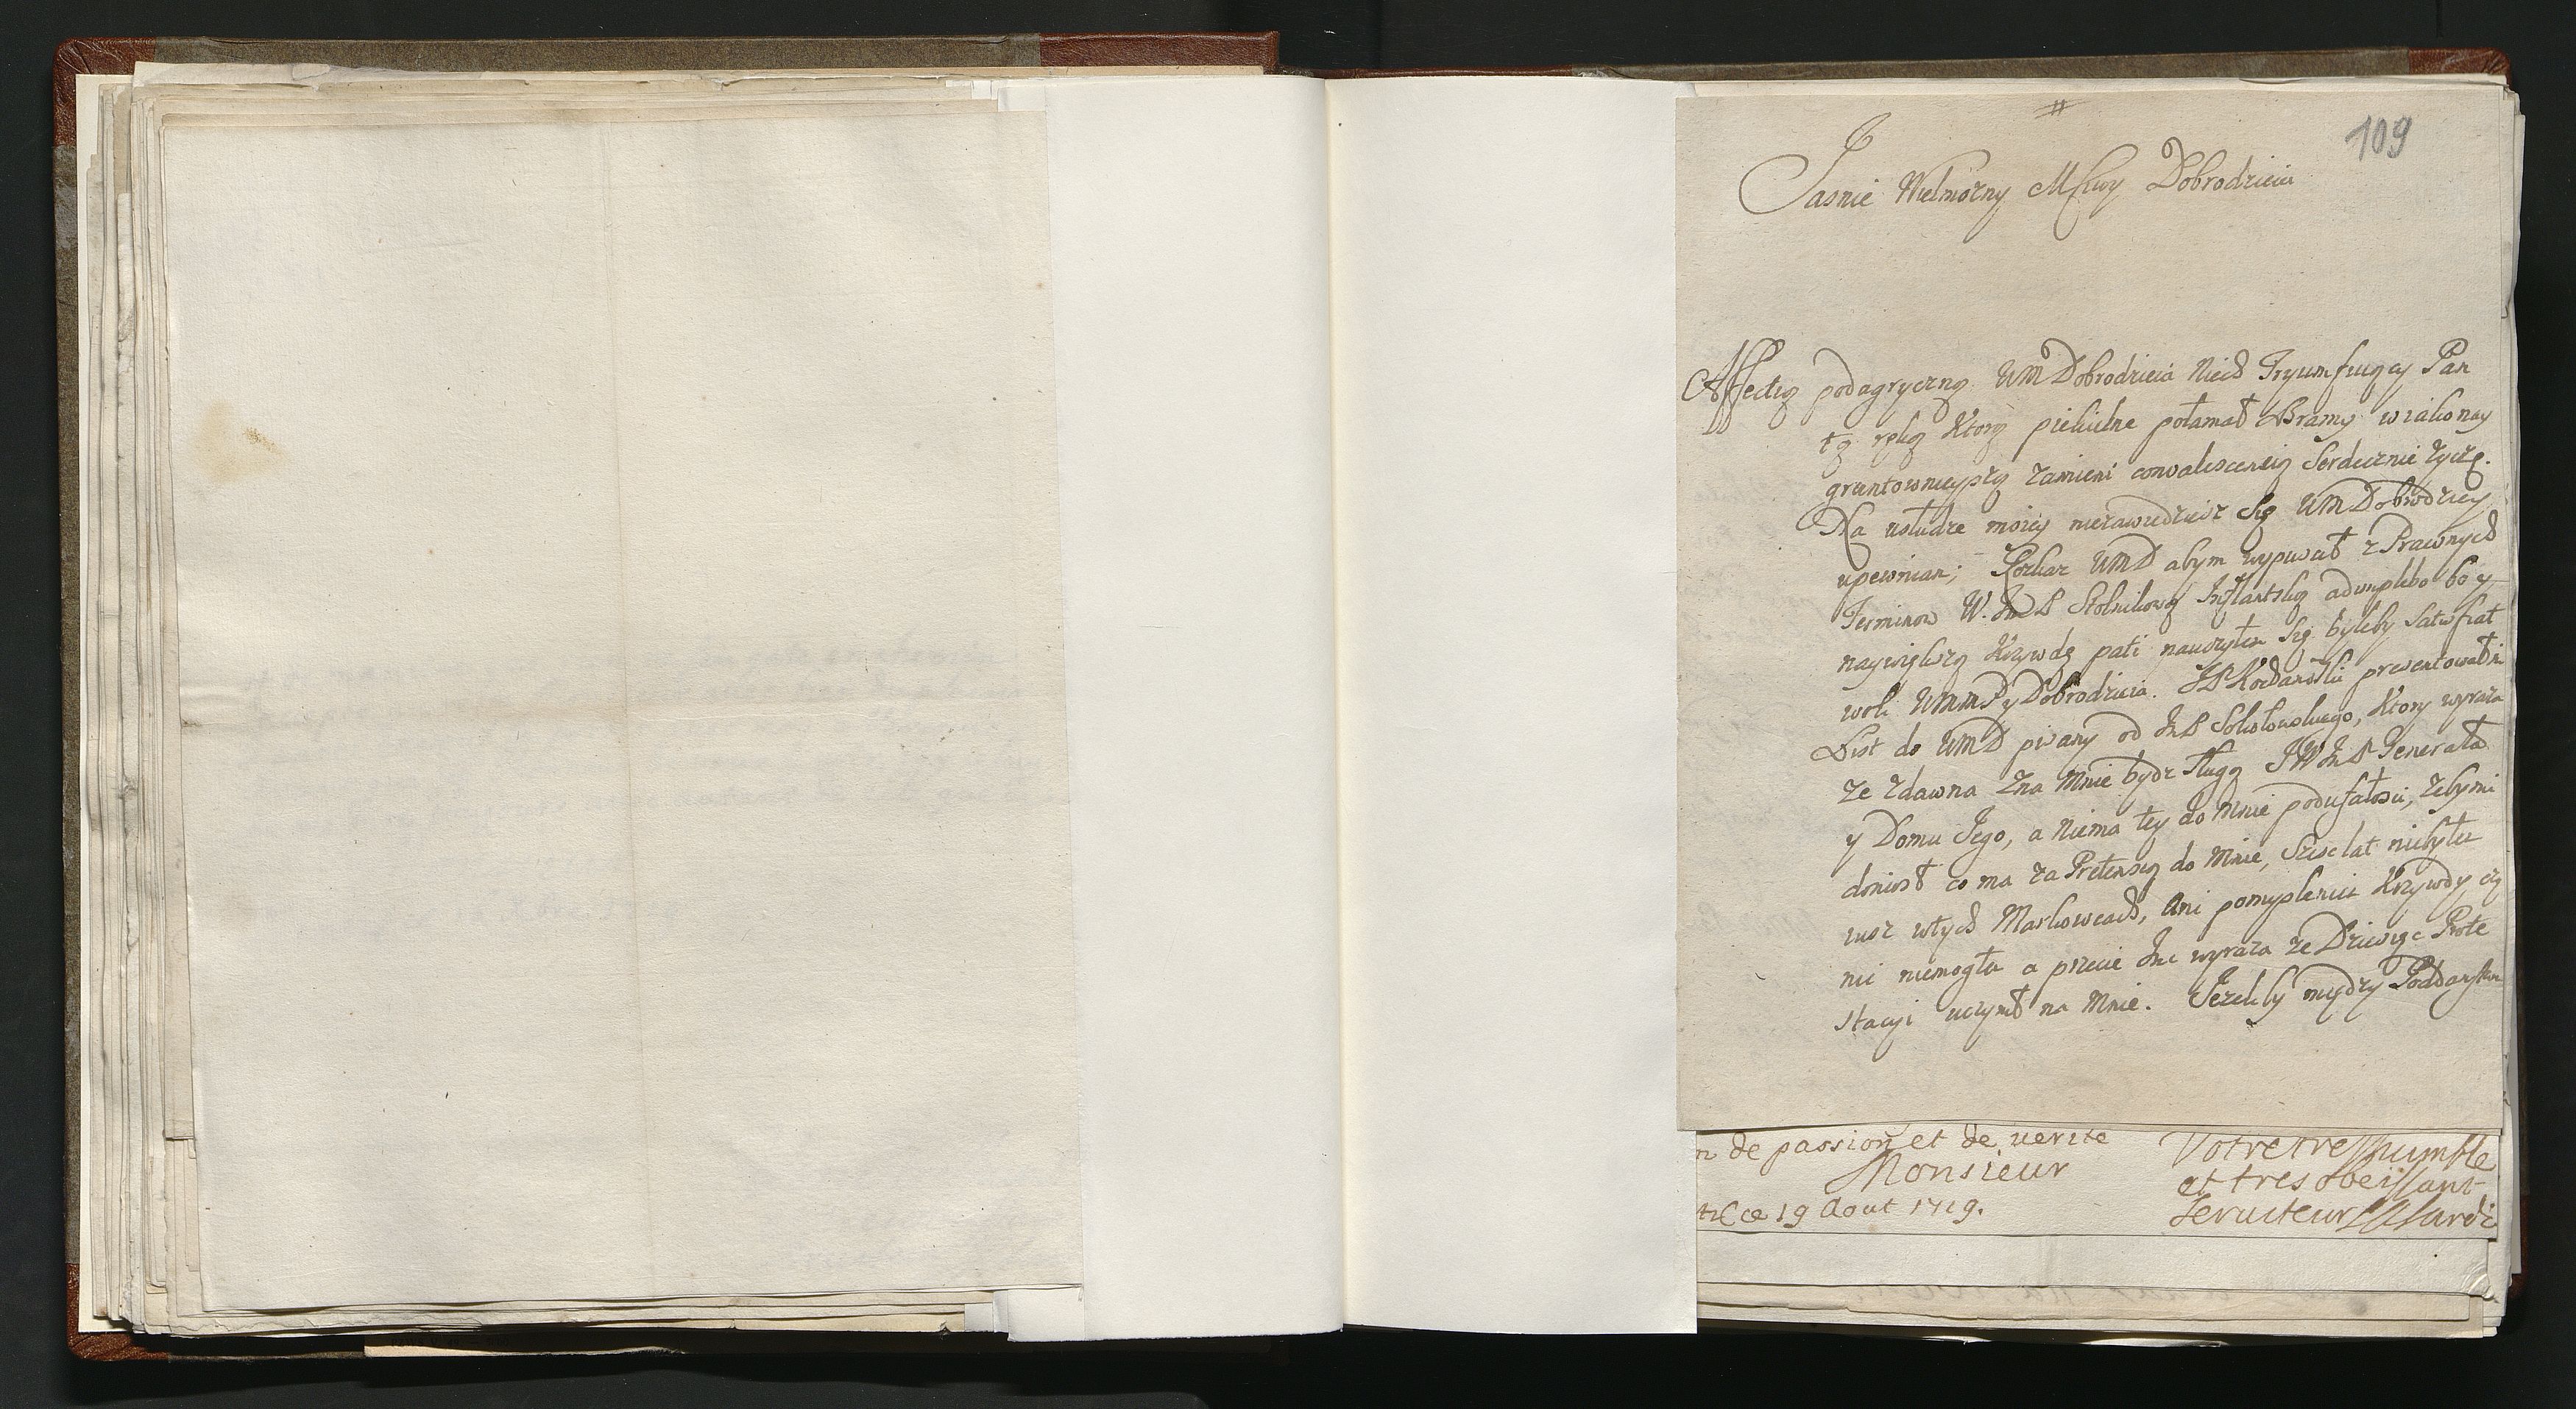 #
109
Jasnie Wielmożny Mściwy Dobrodzieiu
Affectią podagryczną WM Dobrodzieia niech Tryumfuiący Pan
tą ręką Ktorą piekielne połamał Bramy w iako nay
gruntownieyszą zamieni convalescencią Serdecznie życzę.
Na usłudze moiey niezawiedziesz Się WM Dobrodziey
upewniam; Rozkaz WMD abym wypuscił z Prawnych
Terminow W. JmP Stolnikową Inflantską adimplebo bo y
naywiększą Krzywdę pati nauczyłem Się byleby Satisfiat
woli WMMP y Dobrodzieia. JP Kochanski prezentował mi
List do WMD pisany od JmP Sokołowskiego, Ktory wyraża
że zdawna zna Mnie bydz sługą JWJmP Jenerała
y Domu Jego, a niema tey do Mnie poufałosci, żeby mi
doniosł co ma za Pretensyą do Mnie, Szesc lat niebyłem
iusz wtych Maskowcach, ani pomyslenia Krzywdy czy
nic niemogłem a przecie Jmc wyraża że Dziewięc Prote
stacyi uczynił na Mnie. Jezeliby między Poddanstwem
n de passion et de verite
Monsieur
ce 19 Aout 1719.
Votre tres humble
et tres obeissant
Serviteur